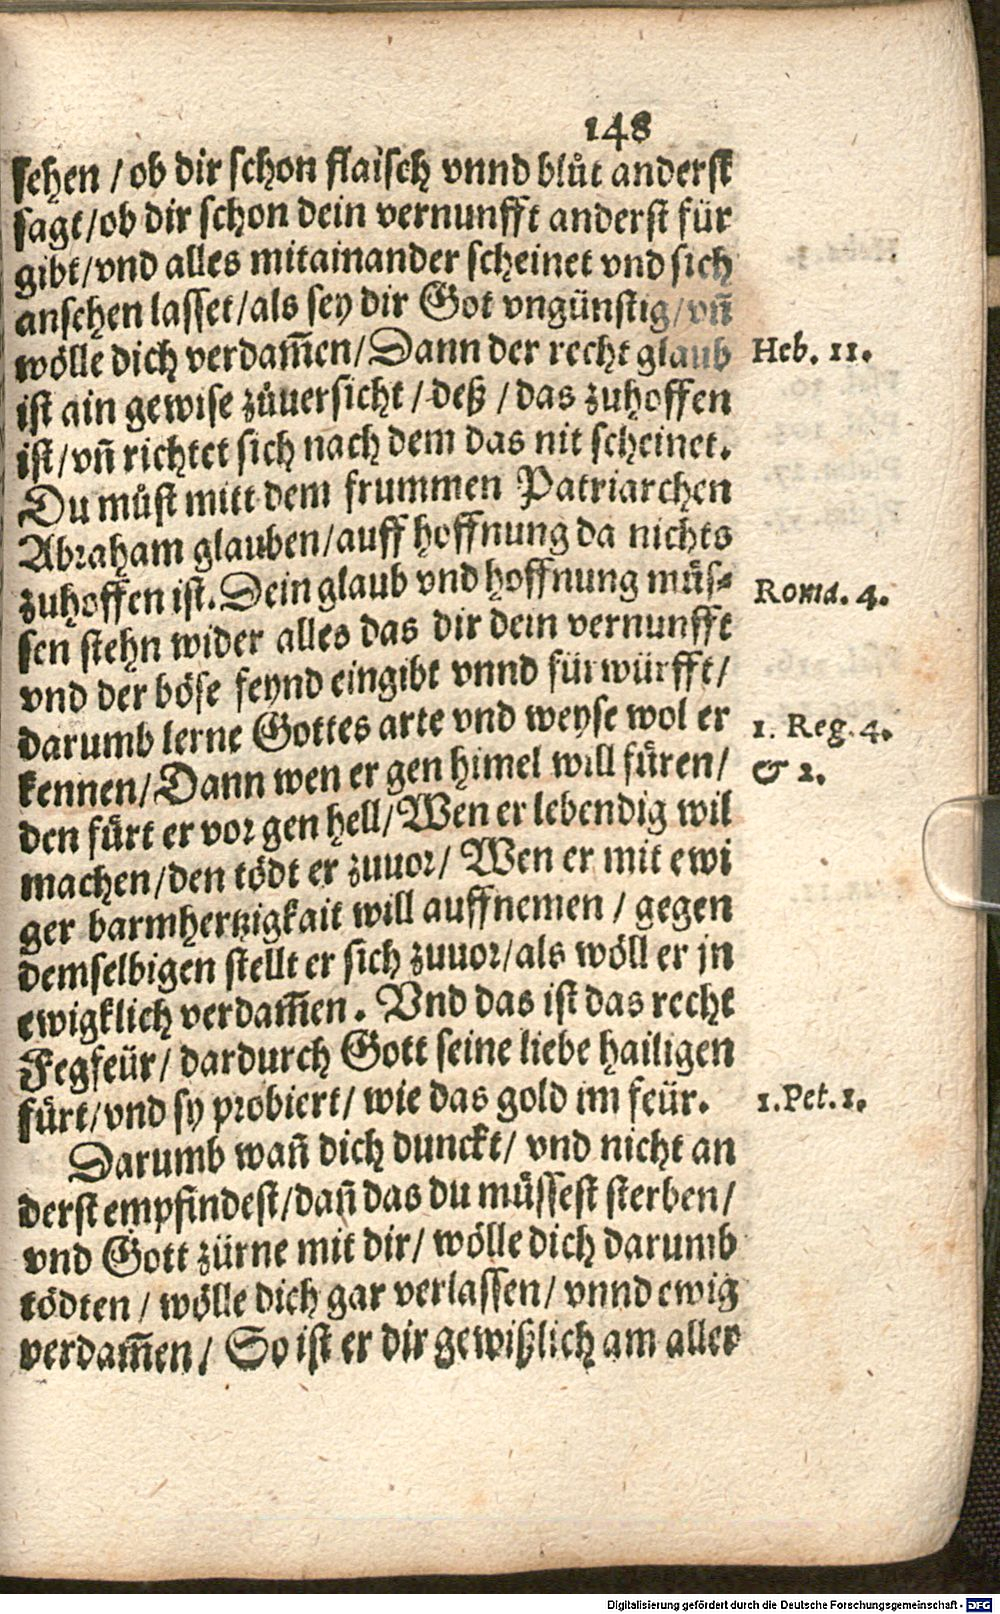 148
sehen / ob dir schon flaisch vnnd blůt anderst
sagt/ob dir schon dein vernunfft anderst für
gibt/vnd alles mitainander scheinet vnd sich
ansehen lasset/als sey dir Got vngünstig/vñ
wölle dich verdam̃en/Dann der recht glaub
Heb. 11.
ist ain gewise zůuersicht / deß / das zuhoffen
ist/vñ richtet sich nach dem das nit scheinet.
Du můst mitt dem frummen Patriarchen
Abraham glauben/auff hoffnung da nichts
zuhoffen ist. Dein glaub vnd hoffnung müs-
Roma. 4.
sen stehn wider alles das dir dein vernunfft
vnd der böse feynd eingibt vnnd fürwürfft/
darumb lerne Gottes arte vnd weyse wol er
1. Reg. 4.
kennen/Dann wen er gen himel will füren/
& 2.
den fürt er vor gen hell/Wen er lebendig wil
machen/den tödt er zuuor/ Wen er mit ewi
ger barmhertzigkait will auffnemen / gegen
demselbigen stellt er sich zuuor/als wöll er jn
ewigklich verdam̃en. Vnd das ist das recht
Fegfeür/ dardurch Gott seine liebe hailigen
fürt/vnd sy probiert/ wie das gold im feür.
1. Pet. 1.
Darumb wañ dich dunckt/ vnd nicht an
derst empfindest/dañ das du müssest sterben/
vnd Gott zürne mit dir/ wölle dich darumb
tödten / wölle dich gar verlassen/ vnnd ewig
verdam̃en/ So ist er dir gewißlich am aller
Digitalisierung gefördert durch die Deutsche Forschungsgemeinschaft - DFG